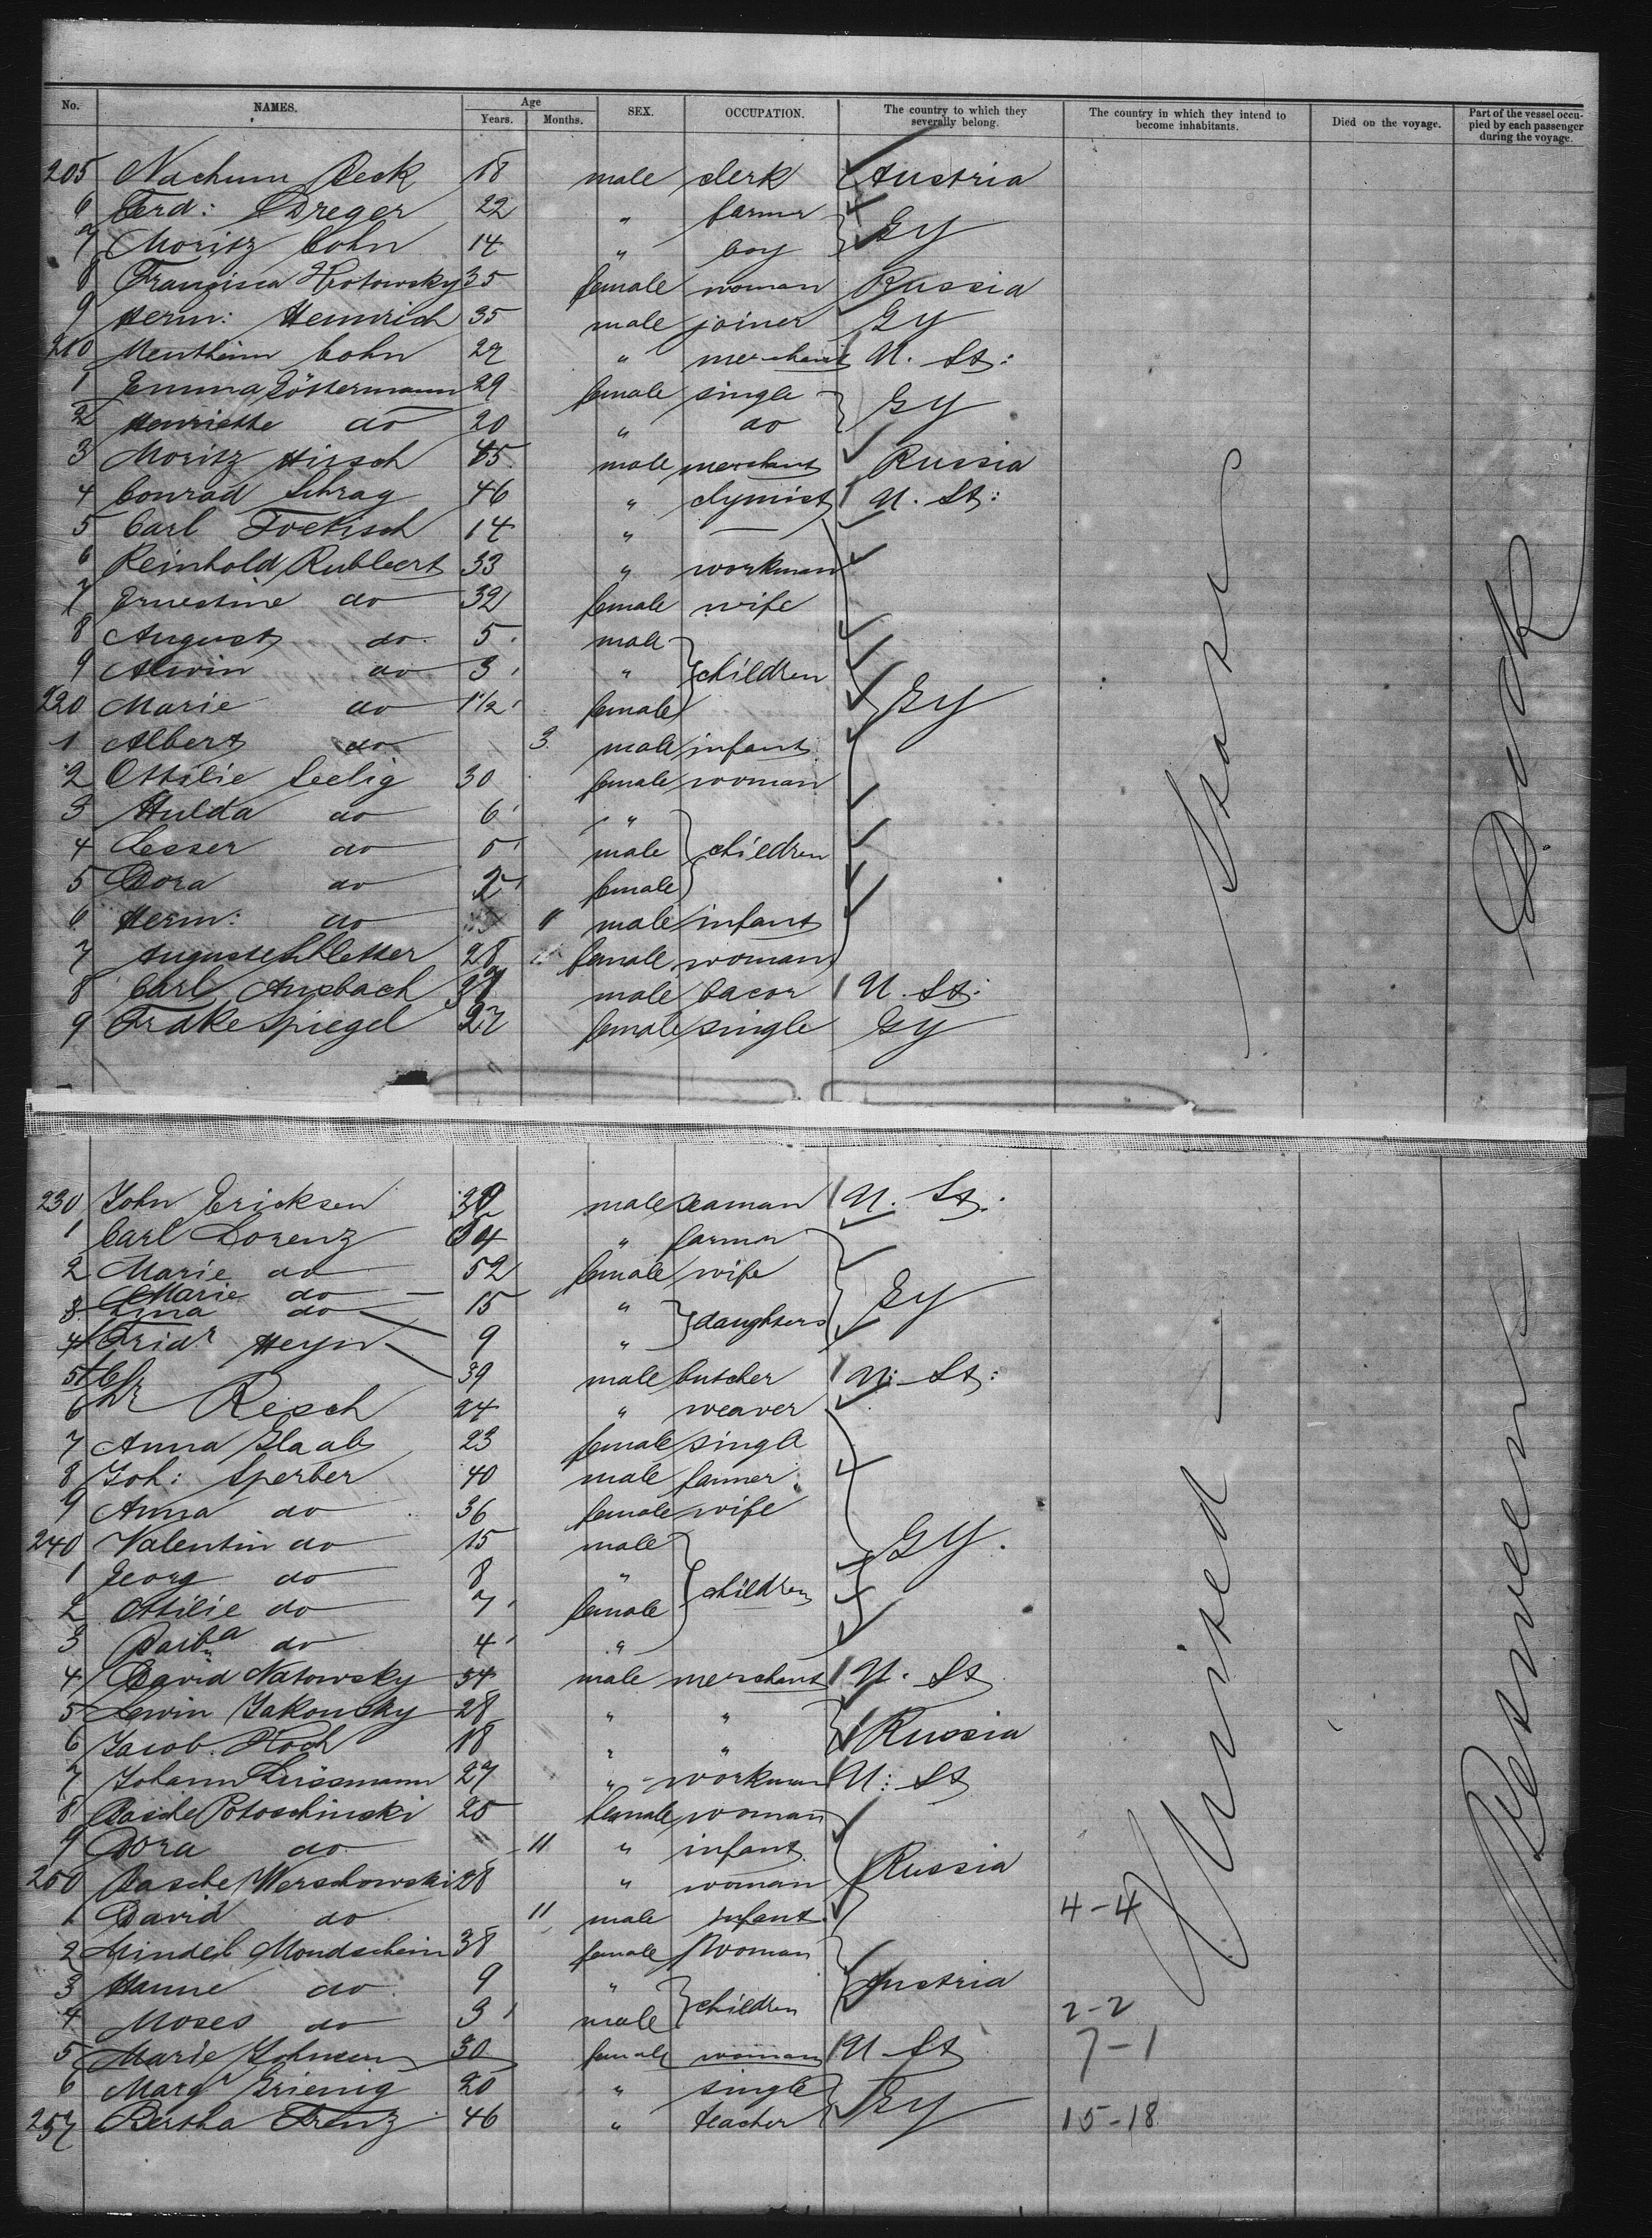 No. NAMES. Age Years. Months. SEX. OCCUPATION. The country to which they severally belong. The country in which they intend to become inhabitants. Died on the voyage. Part of the vessel occupied by each passenger during the voyage.
205 Nachum Beck 18 male clerk Austria
6 Ferd: Dreger 22 " farmer
7 Moritz Cohn 14 " boy Gy
8 Franzisca 35 female woman Russia
9 Herm: Heinrich 35 male joiner Gy
210 Cohn 22 " merchant U. St:
1 Emma 29 female single
2 Henriette do 20 " do Gy
3 Moritz Hirsch 45 male merchant Russia
4 Conrad Schrag 46 " chymist U. St:
5 Carl 14 " —
6 Reinhold 33 " workman
7 Ernestine do 32 female wife
8 August do 5 male
9 Alwin do 3 " children
220 Marie do 1 1/2 female Gy
1 Albert do 3 male infant
2 Ottilie Seelig 30 female woman
3 Hulda do 6 "
4 Lesser do 5 male children
5 Dora do 2 female
6 Herm: do 11 male infant
7 Auguste 28 female woman
8 Carl male U. St:
9 Spiegel 27 female single Gy
230 John Ericksen male seaman U. St.
1 Carl Lorenz 54 " farmer
2 Marie do 52 female wife
Marie do
3 Lina do 15 " daughters Gy
4 Fridr Heyn 9 "
5 39 male butcher U: St:
6 Resch 24 " weaver
7 Anna Glaab 23 female single
8 Joh: Sperber 40 male farmer
9 Anna do 36 female wife
240 Valentin do 15 male Gy.
1 Georg do 8 " children
2 Ottilie do 7 female
3 Barba do 4 "
4 David Natowsky 34 male merchant U. St
5 Lewin 28 " "
6 Jacob Koch 18 " " Russia
7 Johann 27 " workman U: St
8 Basche Potoschinski 25 female woman
9 Dora do 11 " infant
250 Basche Werschowski 28 " woman Russia
1 David do 11 male infant 4-4
2 Mindel Mondschein 38 female woman
3 Hanne do 9 " Austria
4 Moses do 3 male children 2-2
5 Marie 30 female woman U. St 7-1
6 Margr Grienig 20 " single
257 Bertha Frenz 46 " teacher Gy 15-18
United States
Between Deck